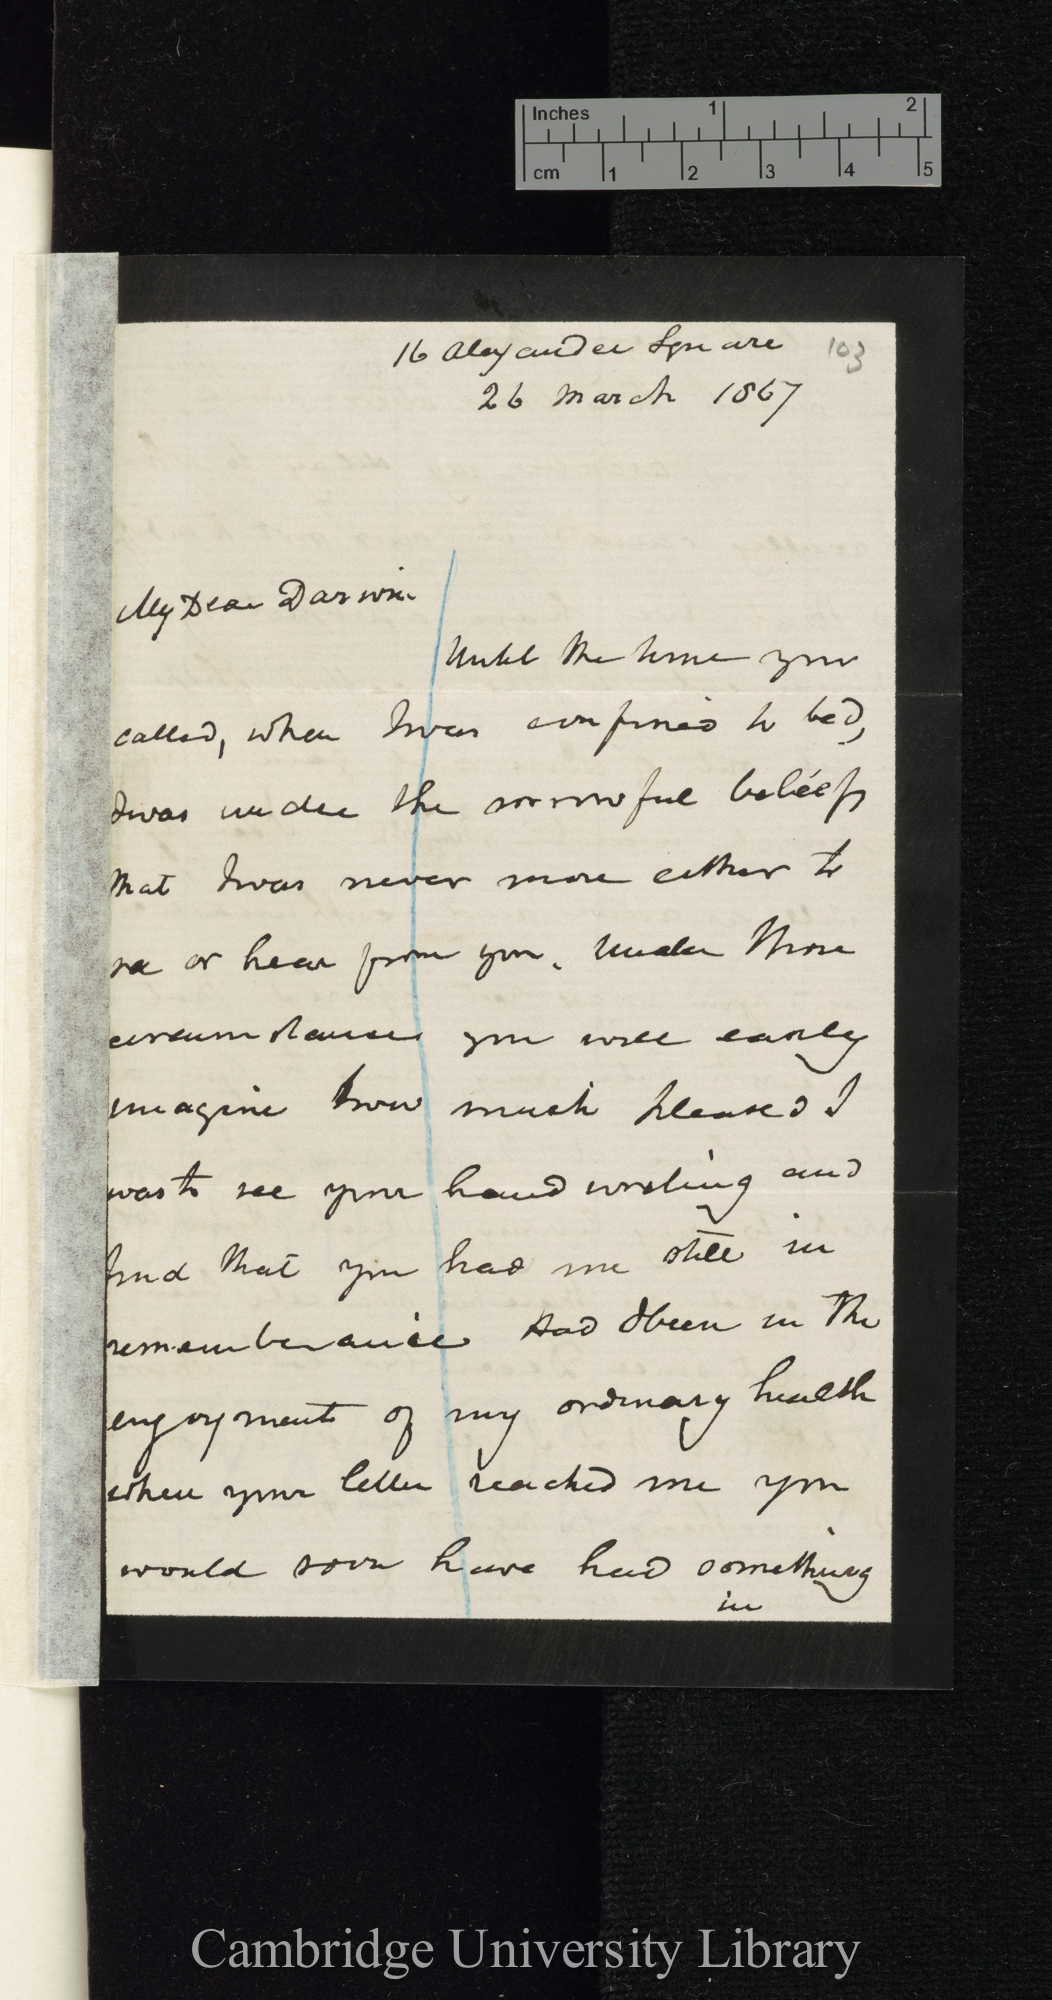 Inches 1 2
cm 1 2 3 4 5
16 Alexander Square 103
26 March 1867
My Dear Darwin
Until the time you
called, when I was confined to bed,
I was under the sorrowful belief,
that I was never more either to
see or hear from you. Under those
circumstances you will easily
imagine how much pleased I
was to see your hand writing and
find that you had me still in
rememberance Had I been in the
enjoyment of my ordinary health
when your letter reached me you
would soon have had something
in
Cambridge University Library